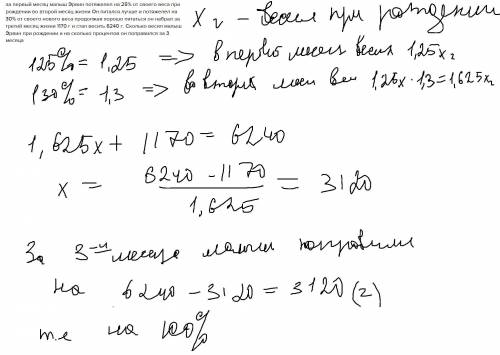 за первый месяц малыш Эрвин потяжелел на 25% от своего веса при
рождении во второй месяц жизни Он питался лучше и потяжелел на
30% от своего нового веса продолжая хорошо питаться он набрал за
третий месяц жизни 1170 г и стал весить 6240 г. Сколько весил малыш
Эрвин при рождении и на сколько процентов он поправился за 3
месяца
x г - весил при рождении
125% = 1,25 => в первый месяц весил 1,25x г
130% = 1,3 => во второй мес вес 1,25x · 1,3 = 1,625x г
1,625x + 1170 = 6240
x = (6240 - 1170) / 1,625 = 3120
За 3 месяца малыш поправился
на 6240 - 3120 = 3120 (г)
т.е на 100%